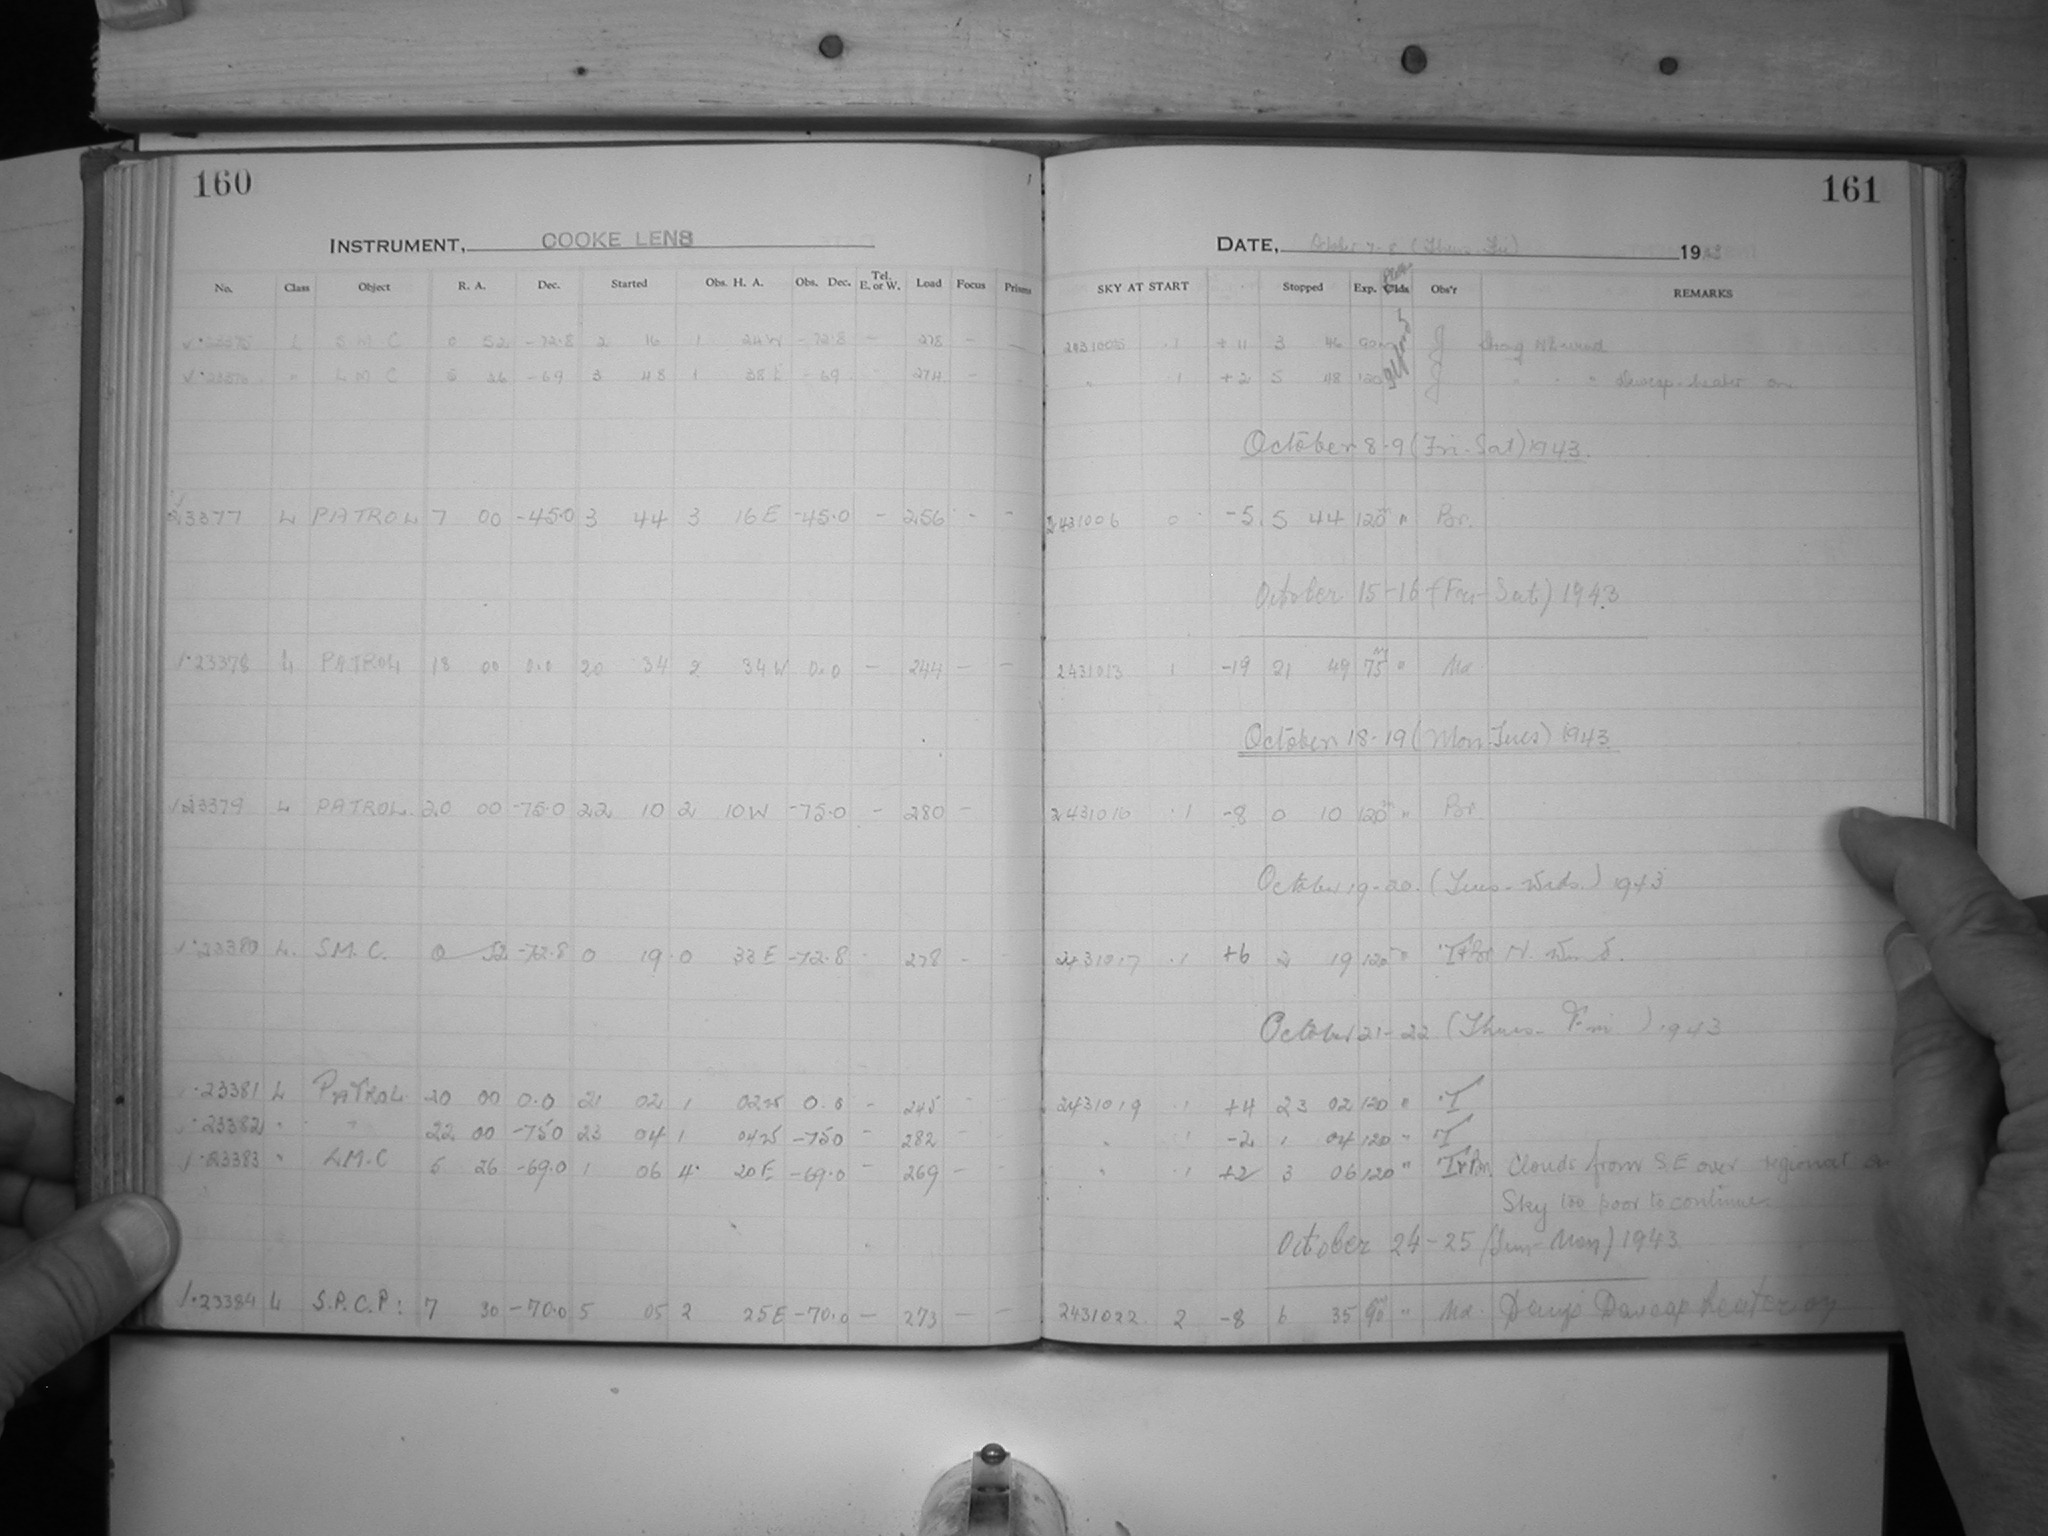 160
INSTRUMENT, COOKE LENS
No. Class Object R. A. Dec. Started Obs. H. A. Obs. Dec. Tel. E. or W. Load Focus Prisms
23375 L S M C 0 52 -72.8 2 16 1 24W -72.8 - 278 - -
23376 " L M C 5 26 -69 3 48 1 38E -69 274 - -
23377 L PATROL 7 00 -45.0 3 44 3 16E -45.0 - 256 - -
23378 L PATROL 18 00 0.0 20 34 2 34W 0.0 - 244 - -
23379 L PATROL. 20 00 -75.0 22 10 2 10W -75.0 - 280 -
23380 L. S.M.C. 0 52 -72.8 0 19 0 33E -72.8 - 278 - -
23381 L PATROL 20 00 0.0 21 02 1 02W 0.0 - 245 -
23382 " " 22 00 -75.0 23 04 1 04W -75.0 - 282 -
23383 " LMC 5 26 -69.0 1 06 4 20E -69.0 - 269 -
23384 L S.P.C.P: 7 30 -70.0 5 05 2 25E -70.0 - 273 - -
161
DATE, October 7-8 (Thurs-Fri) 1943
SKY AT START Stopped Exp. Plate Clds Obs'r REMARKS
2431005 .1 +11 3 46 90m J Wind
" .1 +2 5 48 120 J " " " Dewcap heater on
October 8-9 (Fri-Sat) 1943.
2431006 0 -5 5 44 120m " Br.
October 15-16 (Fri-Sat) 1943
2431013 1 -19 21 49 75m " Ma
October 18-19 (Mon-Tues) 1943
2431016 .1 -8 0 10 120m " Br
October 19-20. (Tues-Weds.) 1943
2431017 .1 +6 2 19 120m " T+Br N. Wind.
October 21-22 (Thurs-Fri) 1943
2431019 .1 +4 23 02 120 " T
" .1 -2 1 04 120 " T
" .1 +2 3 06 120 " Clouds from S.E over regional on
Sky too poor to continue
October 24-25 (Sun-Mon) 1943
2431022. 2 -8 6 35 90m " Ma. Damp Dewcap heater on